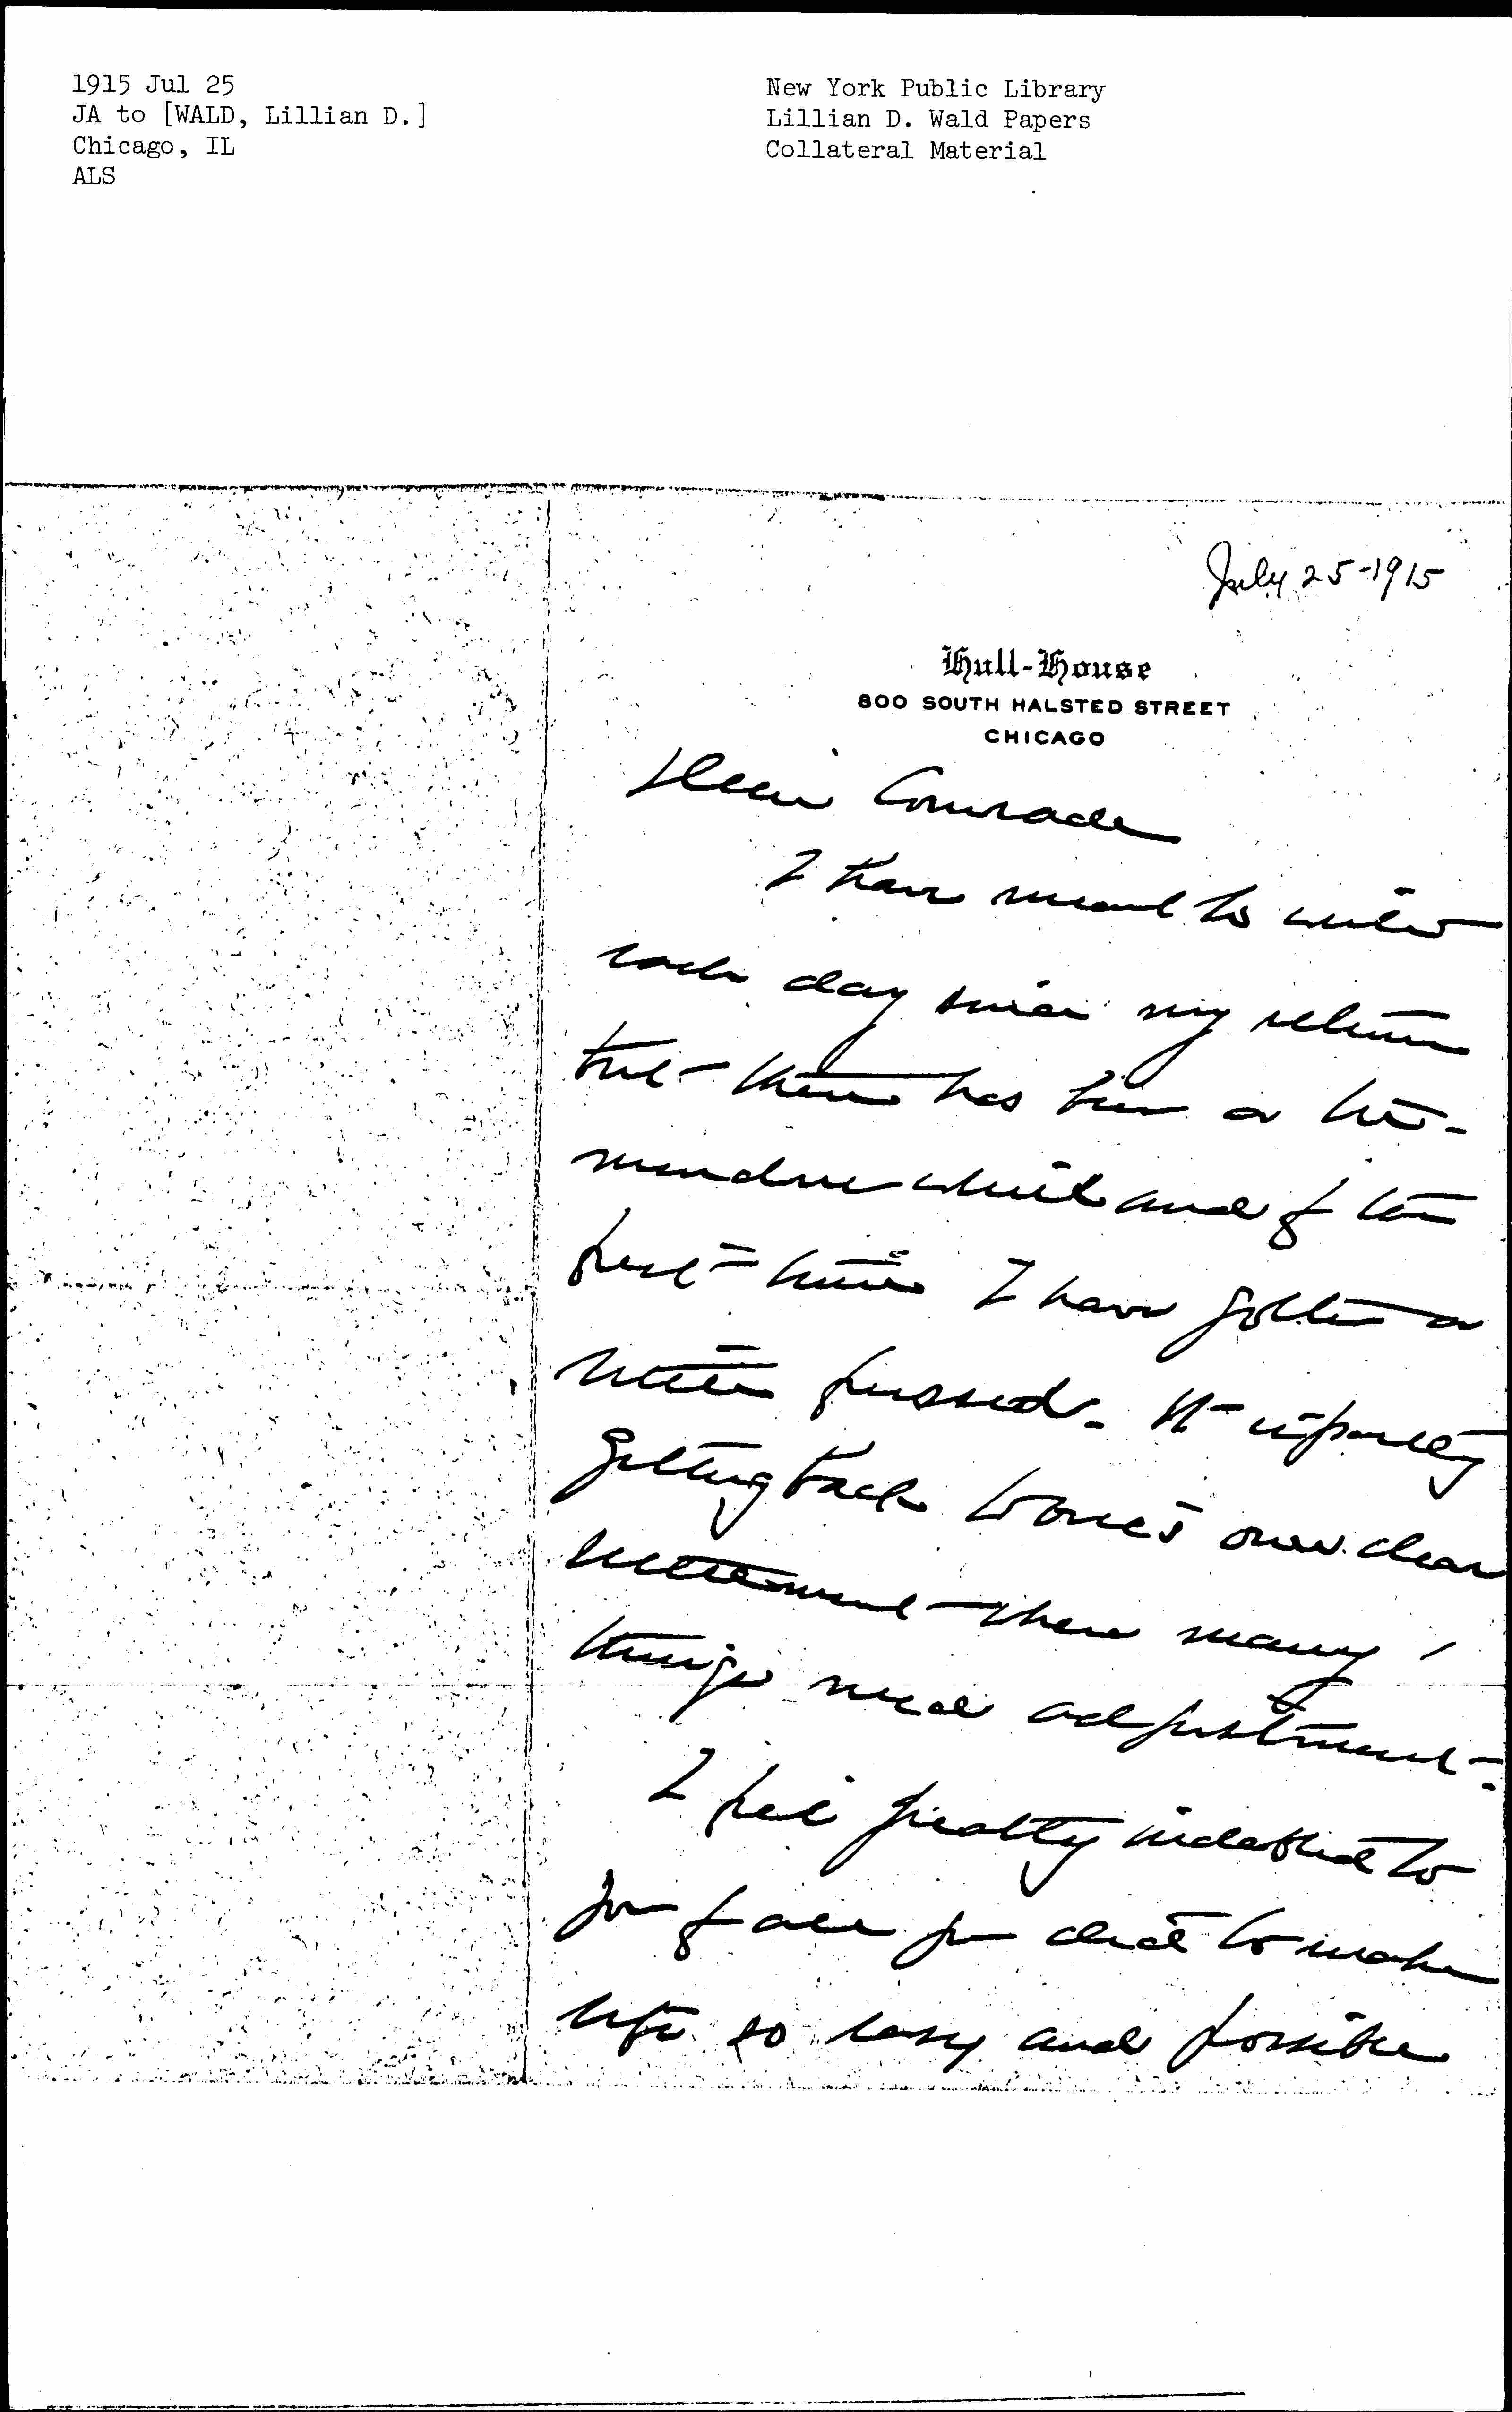 1915 Jul 25
JA to [WALD, Lillian D.]
Chicago, IL
ALS
New York Public Library
Lillian D. Wald Papers
Collateral Material
July 25-1915
Hull-House
800 SOUTH HALSTED STREET
CHICAGO
Dear Comrade
I have meant to write
each day since my return
but there has been a tre-
mendous whirl and for the
first time I have gotten a
little fussed. It is partly
getting back to one's own dear
settlement where many
things need adjustment-
I feel greatly indebted to
you for all you did to make
life so easy and possible